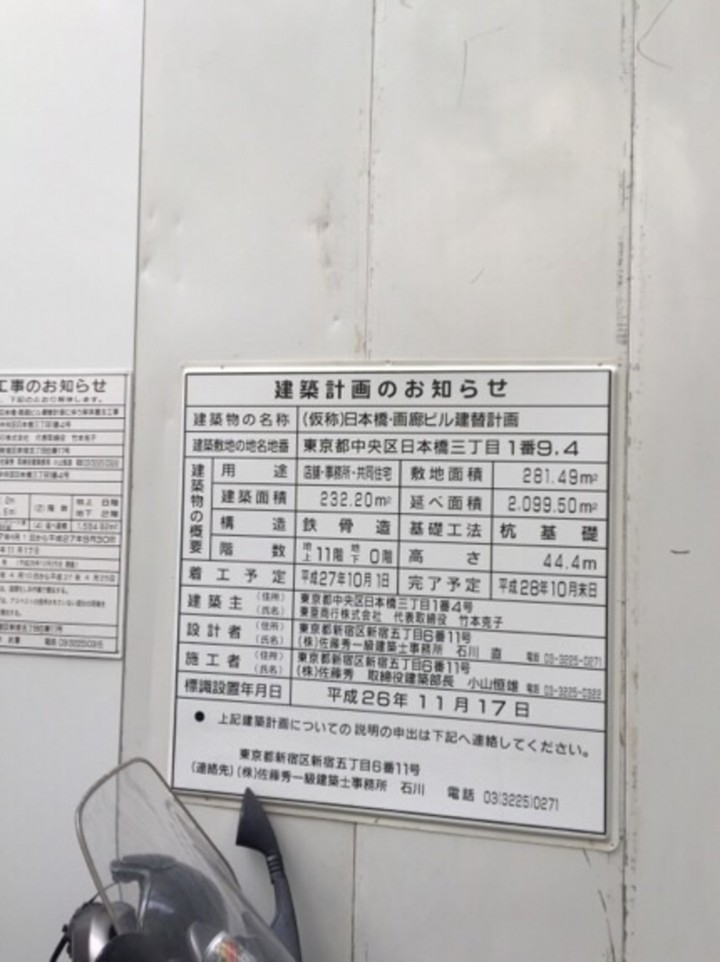 工事のお知らせ
建築計画のお知らせ
建築物の名称 (仮称)日本橋・画廊ビル建替計画
建築敷地の地名地番 東京都中央区日本橋三丁目1番9.4
建築物の概要
用途 店舗・事務所・共同住宅 敷地面積 281.49m²
建築面積 232.20m² 延べ面積 2,099.50m²
構造 鉄骨造 基礎工法 杭基礎
階数 地上11階 地下0階 高さ 44.4m
着工予定 平成27年10月1日 完了予定 平成28年10月末日
建築主 (住所) 東京都中央区日本橋三丁目1番4号
(氏名) 東亜商行株式会社 代表取締役 竹本克子
設計者 (住所) 東京都新宿区新宿五丁目6番11号
(氏名) (株)佐藤秀一級建築士事務所 石川 直 電話 03-3225-0271
施工者 (住所) 東京都新宿区新宿五丁目6番11号
(氏名) (株)佐藤秀 取締役建築部長 小山恒雄 電話 03-3225-0322
標識設置年月日 平成26年11月17日
● 上記建築計画についての説明の申出は下記へ連絡してください。
東京都新宿区新宿五丁目6番11号
(連絡先) (株)佐藤秀一級建築士事務所 石川 電話 03(3225)0271